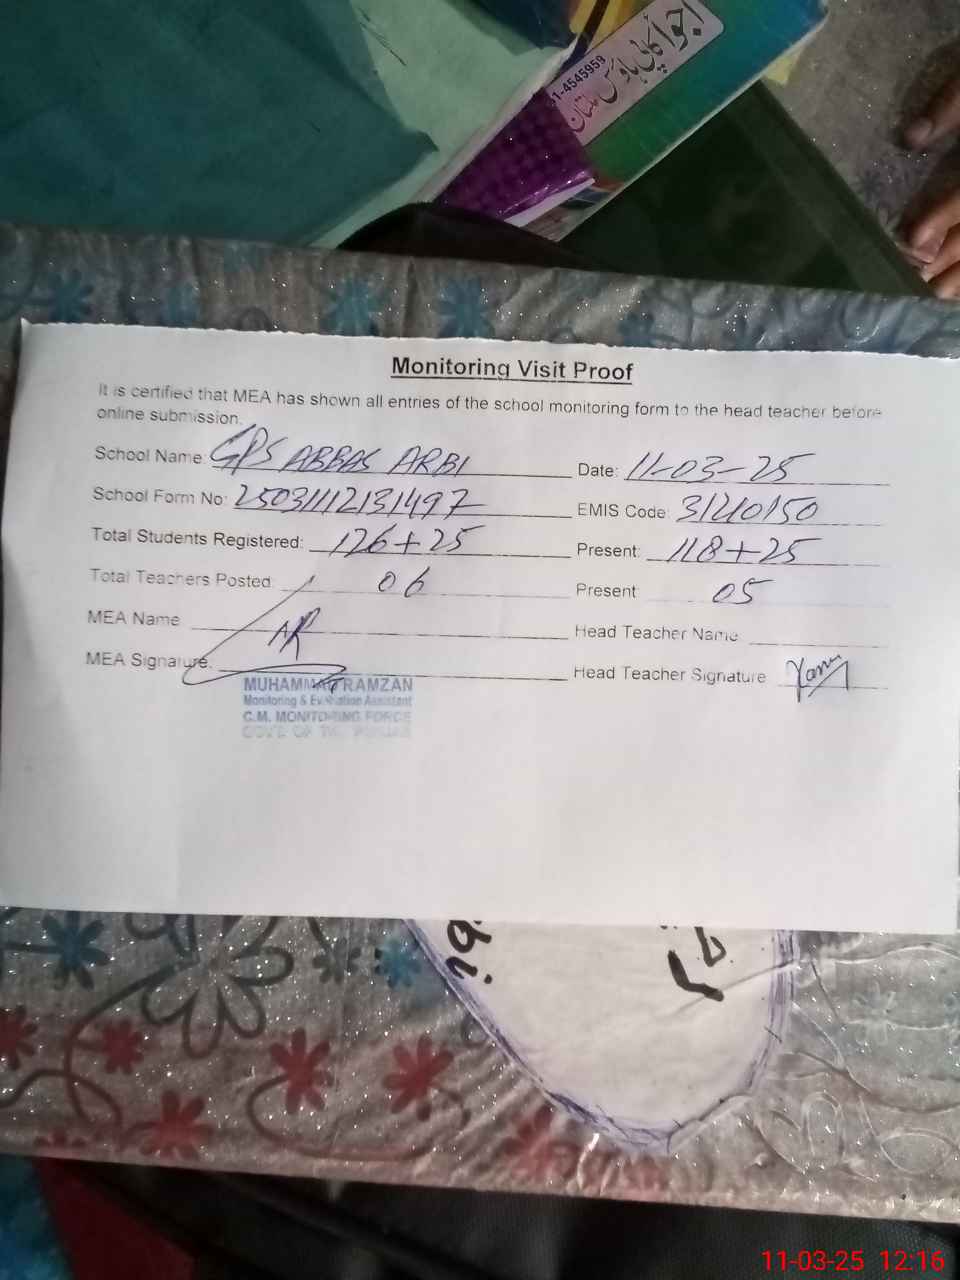 اجوا کاپی ہاؤس ملتان
1-4545959
Monitoring Visit Proof
It is certified that MEA has shown all entries of the school monitoring form to the head teacher before
online submission.
School Name: GPS ABBAS ARBI Date: 11-03-25
School Form No: 25031112131497 EMIS Code: 31210150
Total Students Registered: 126+25 Present: 118+25
Total Teachers Posted: 06 Present 05
MEA Name Head Teacher Name
MEA Signature: Head Teacher Signature
MUHAMMAD RAMZAN
Monitoring & Evaluation Assistant
C.M. MONITORING FORCE
GOVT. OF THE PUNJAB
11-03-25 12:16